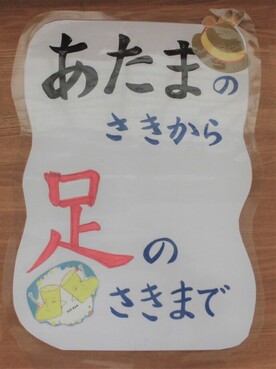 あたまの
さきから
足の
さきまで